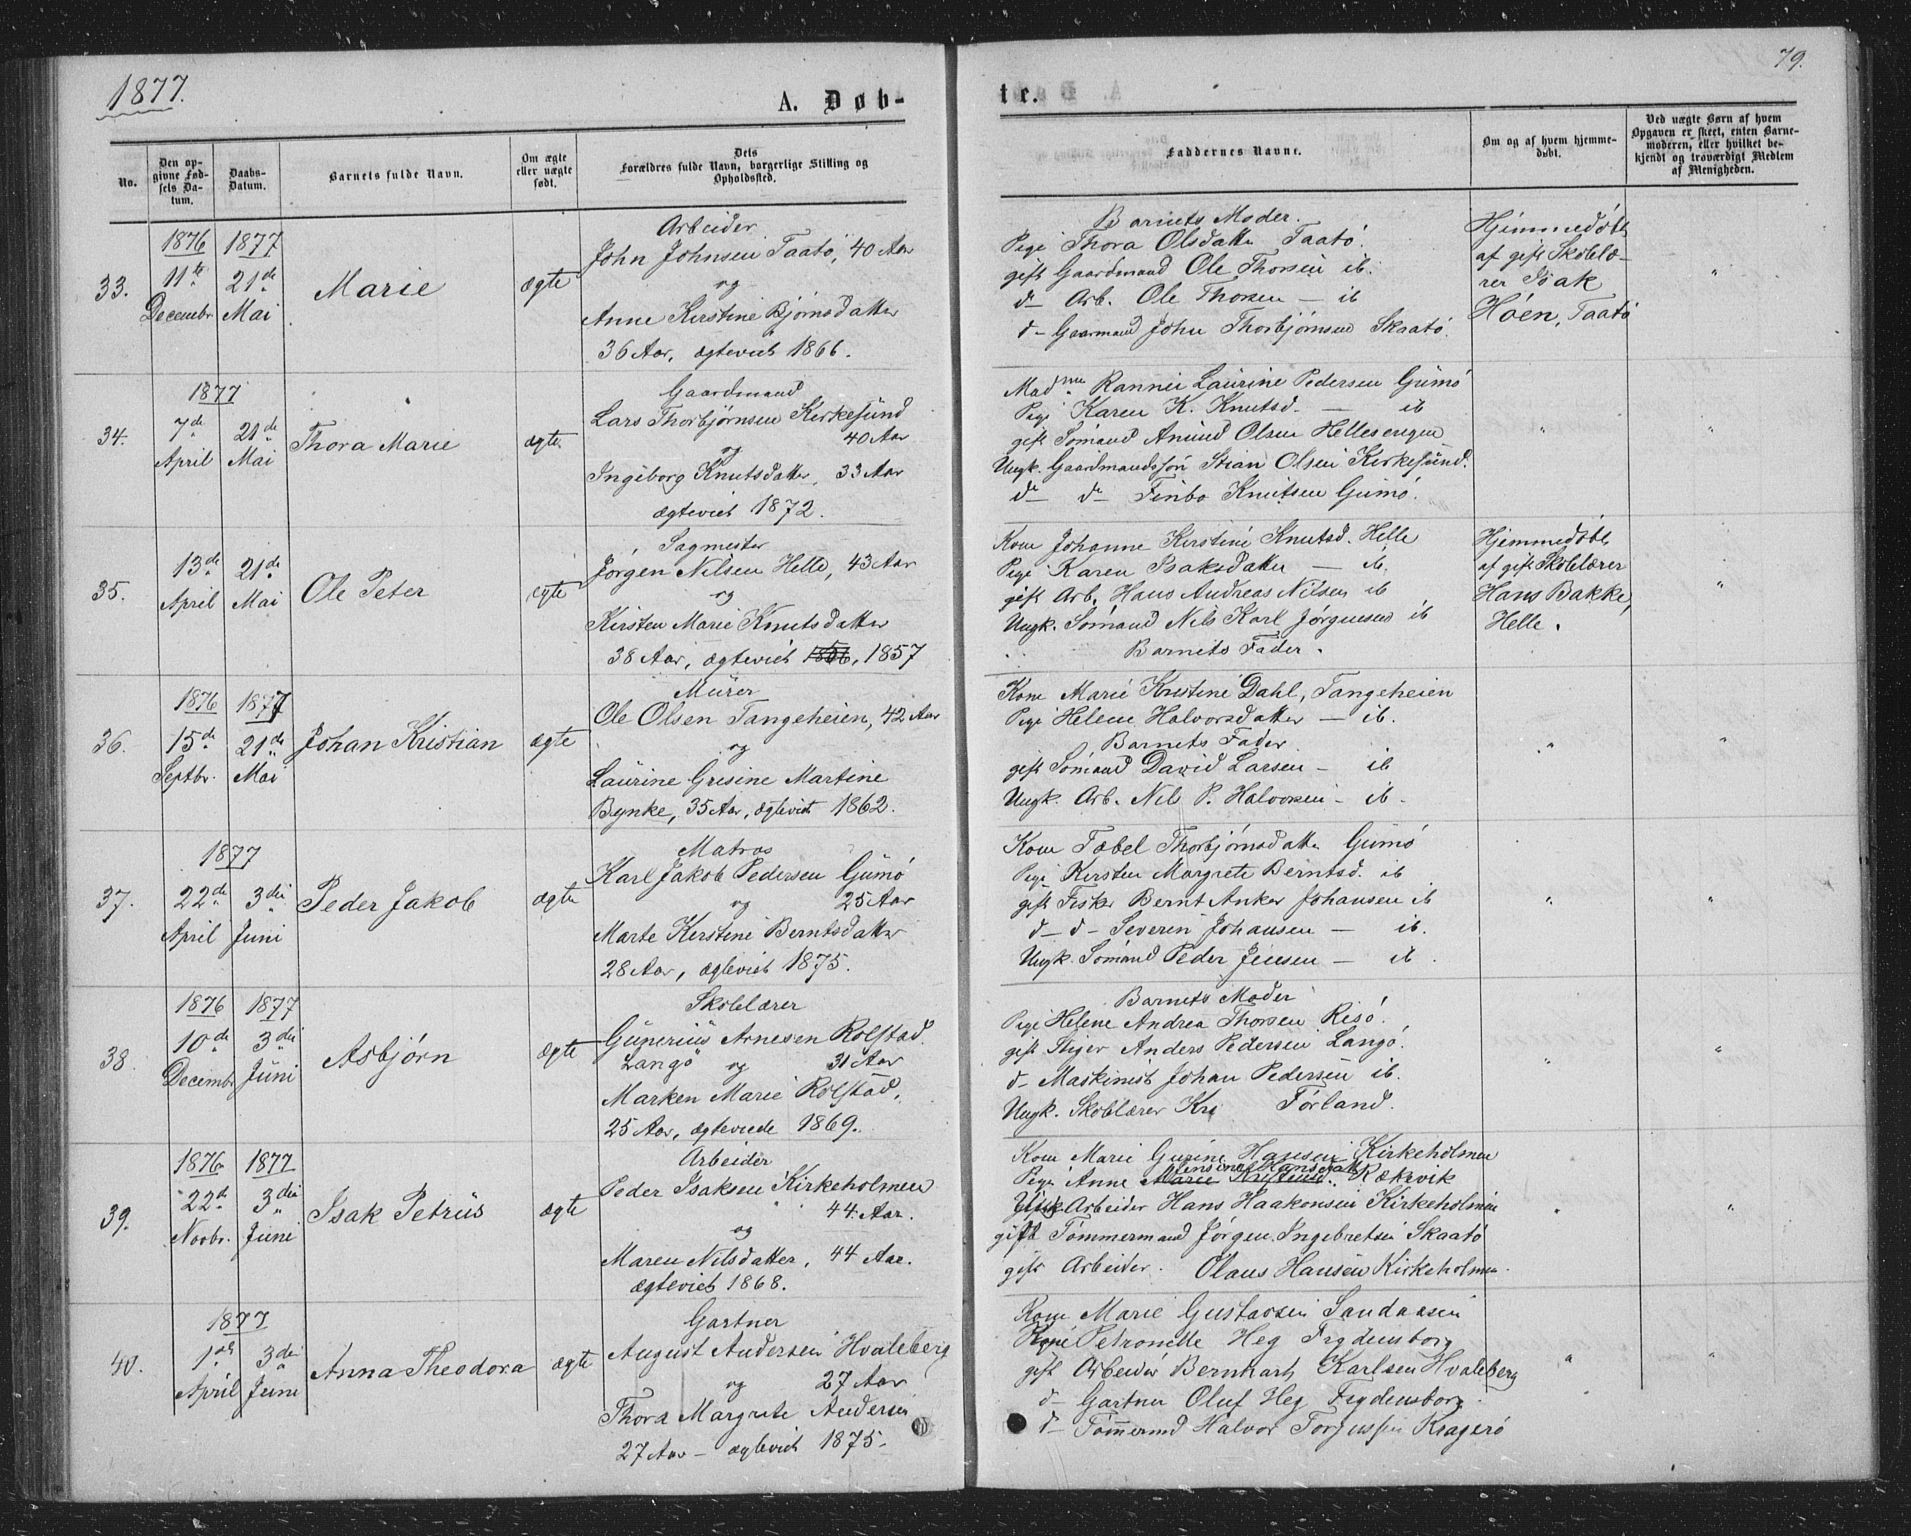 1877.
79.
A. Døb-
te.
No.
Den op-
givne Fød-
sels Da-
tum.
Daabs-
Datum.
Barnets fulde Navn.
Om ægte
eller uægte
født.
Dets
Forældres fulde Navn, borgerlige Stilling og
Opholdssted.
Faddernes Navne.
Om og af hvem hjemme-
døbt.
Ved uægte Børn af hvem
Opgaven er skeet, enten Barne-
moderen, eller hvilket be-
kjendt og troværdigt Medlem
af Menigheden.
33.
1876
11te
Decembr
1877
21de
Mai
Marie
ægte
Arbeider
John Johnsen Taatø, 40 Aar
og
Anne Kirstine Bjørnsdatter
36 Aar, ægteviet 1866.
Barnets Moder.
Pige Thora Olsdatter Taatø.
gift Gaardmand Ole Thorsen ib.
do Arb. Ole Thorsen — ib
do Gaarmand John Thorbjørnsen Skaatø.
Hjemmedøbt
af gift Skolelæ-
rer Isak
Høen, Taatø
"
34.
1877
7de
April
21de
Mai
Thora Marie
ægte
Gaardmand
Lars Thorbjørnsen Kirkesund
40 Aar
og
Ingeborg Knutsdatter, 33 Aar
ægteviet 1872.
Madme Rannei Laurine Pedersen Gumø
Pige Karen K. Knutsd. — ib
gift Sømand Anund Olsen Hellesengen
Ungk. Gaardmandssøn Stian Olsen Kirkesund.
do do Finbo Knutsen Gumø.
"
"
35.
13de
April
21de
Mai
Ole Peter
ægte
Sagmester
Jørgen Nilsen Helle, 43 Aar
og
Kirsten Marie Knutsdatter
38 Aar, ægteviet 1856, 1857
Kone Johanne Kirstine Knutsd. Helle
Pige Karen Isaksdatter — ib.
gift Arb. Hans Andreas Nilsen ib
Ungk. Sømand Nils Karl Jørgensen ib
Barnets Fader.
Hjemmedøbt
af gift Skolelærer
Hans Bakke,
Helle.
"
36.
1876
15de
Septbr.
1877
21de
Mai
Johan Kristian
ægte
Murer
Ole Olsen Tangeheien, 42 Aar
og
Laurine Grisine Martine
Bynke, 35 Aar, ægteviet 1862.
Kone Marie Kristine Dahl, Tangeheien
Pige Helene Halvorsdatter — ib.
Barnets Fader
gift Sømand David Larsen — ib
Ungk. Arb. Nils P. Halvorsen — ib.
"
"
37.
1877
22de
April
3die
Juni
Peder Jakob
ægte
Matros
Karl Jakob Pedersen Gumø
og 25 Aar
Marte Kirstine Berntsdatter
28 Aar, ægteviet 1875.
Kone Tabel Thorbjørnsdatter Gumø
Pige Kirsten Margrete Berntsd. ib
gift Fisker Bernt Anker Johansen ib
do do Severin Johansen — ib.
Ungk. Sømand Peder Jensen — ib.
"
"
38.
1876
10de
Decembr
1877
3die
Juni
Asbjørn
ægte
Skolelærer
Gunerius Arnesen Rolstad.
Langø og 31 Aar
Marken Marie Rolstad,
25 Aar, ægteviede 1869.
Barnets Moder
Pige Helene Andrea Thorsen Risø.
gift Stiger Anders Pedersen Langø.
do Maskinist Johan Pedersen ib.
Ungk. Skolelærer Kri Førland.
"
"
39.
1876
22de
Novbr.
1877
3die
Juni
Isak Petrus
ægte
Arbeider
Peder Isaksen Kirkeholmen
44 Aar.
og
Maren Nilsdatter, 44 Aar.
ægteviet 1868.
Kone Marie Gurine Hansen Kirkeholmen
Pige Anne Marie Kristensd. Rækevik
Ungk. Arbeider Hans Haakonsen Kirkeholmen
gift Tømmermand Jørgen Ingebretsen Skaatø
gift Arbeider. Olaus Hansen Kirkeholmen.
"
"
40.
1877
1ste
April
3die
Juni
Anna Theodora
ægte
Gartner
August Andersen Hvaleberg
og 27 Aar
Thora Margrete Andersen
27 Aar — ægteviet 1875.
Kone Marie Gustavsen Sandaasen
Kone Petronelle Heg Frydensborg
gift Arbeider Bernhart Karlsen Hvaleberg
do Gartner Oluf Heg Frydensborg.
do Tømmermd Halvor Torjussen Kragerø
"
"